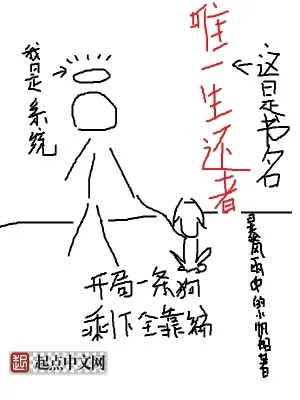 唯一生还者
这是书名
我是系统
暴风雨中的小帆船著
开局一条狗
剩下全靠编
起点中文网